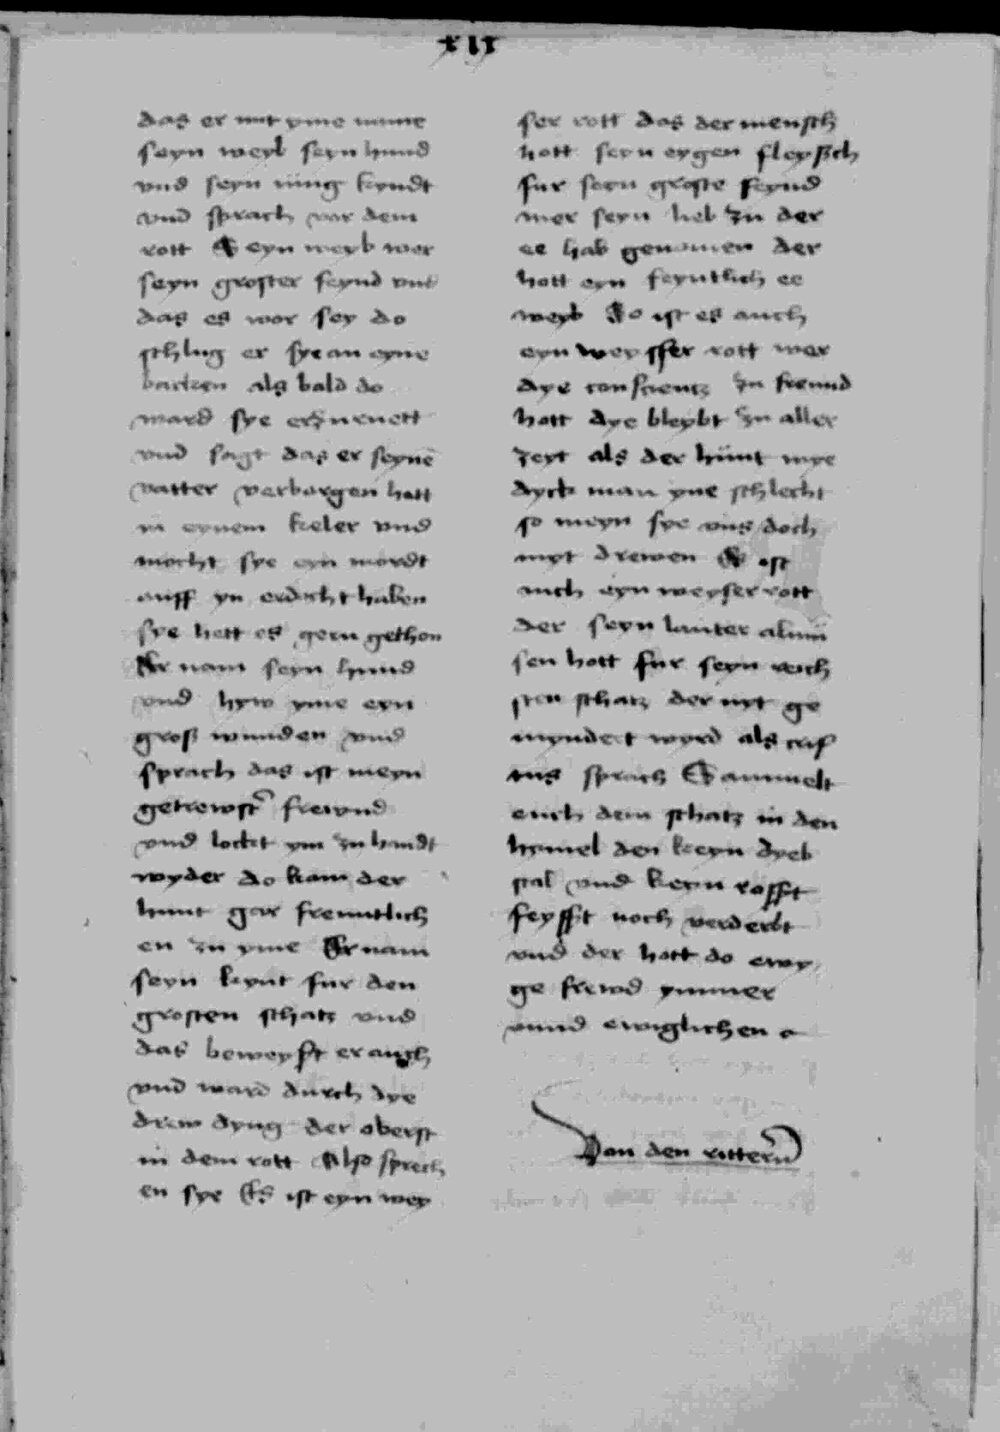 xii
das er mit yme neme
seyn weyb seyn hund
vnd seyn iung kyndt
vnd sprach vor dem
rott Seyn weyb wer
seyn groster feynd vnd
das es wor sey do
schlug er sye an eyne
backen als bald do
ward sye erzurnett
vnd sagt das er seyne
vatter verborgen hatt
in eynem keler vnd
mocht sye eyn mordt
auff yn erdacht haben
sye hett es gern gethon
Er nam seyn hund
vnd hyw yme eyn
groß wunden vnd
sprach das ist meyn
getrewster frewnd
vnd lockt ym zu handt
wyder do kam der
hunt gar freuntlich
en zu yme Er nam
seyn kynt fur den
grosten schatz vnd
das beweyst er auch
vnd ward durch dye
drew dyng der oberst
in dem rott Also sprech
en sye Es ist eyn wey
ser rott das der mensch
hott seyn eygen fleyßch
fur seyn groste feynd
wer seyn lieb zu der
ee hab genomen der
hott eyn feyntlich ee
weyb So ist es auch
eyn weysser rott wer
dye conscientz zu freund
hott dye bleybt zu aller
zeyt als der hunt wye
dyck man yne schlecht
so meyn sye vns doch
myt drewen Es ist
auch eyn weyser rott
der seyn lauter almu
sen hott fur seyn reich
sten schatz der nyt ge
myndert wyrd als crist
tus sprach Sammelt
euch dem schatz in den
hymel den keyn dyeb
stal vnd keyn rosst
feysst noch verderbt
vnd der hott do ewy
ge frewd ymmer
vnnd ewiglichen
Von den rittern